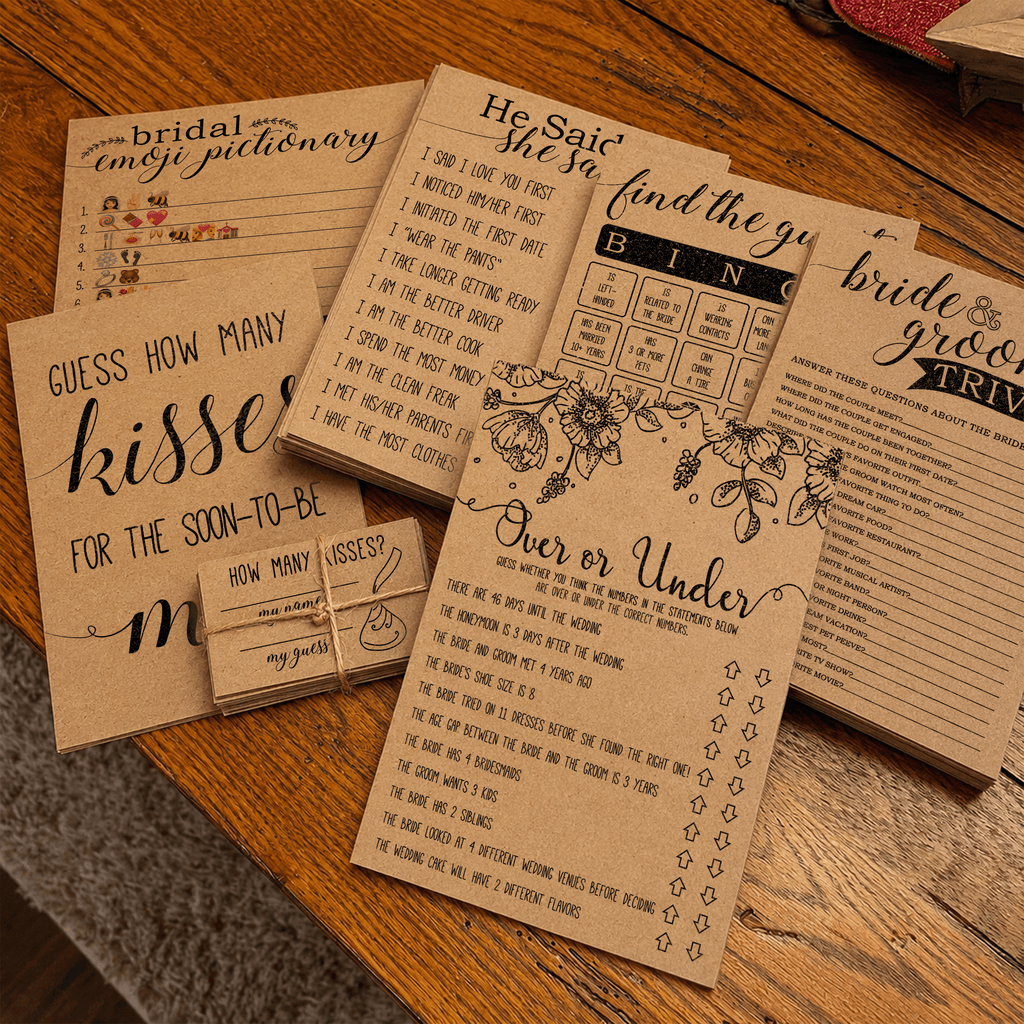 bridal
emoji pictionary
1.
2.
3.
4.
5.
6.
He Said
she sa
I SAID I LOVE YOU FIRST
I NOTICED HIM/HER FIRST
I INITIATED THE FIRST DATE
I "WEAR THE PANTS"
I TAKE LONGER GETTING READY
I AM THE BETTER DRIVER
I AM THE BETTER COOK
I SPEND THE MOST MONEY
I AM THE CLEAN FREAK
I MET HIS/HER PARENTS FIR
I HAVE THE MOST CLOTHES
find the gu
B I N G
IS LEFT-HANDED
IS RELATED TO THE BRIDE
IS WEARING CONTACTS
CAN
MORE
LAN
HAS BEEN MARRIED 10+ YEARS
HAS 3 OR MORE PETS
CAN CHANGE A TIRE
IS
IS THE
bride &
groo
TRIV
ANSWER THESE QUESTIONS ABOUT THE BRIDE
WHERE DID THE COUPLE MEET?
WHERE DID THE COUPLE GET ENGAGED?
HOW LONG HAS THE COUPLE BEEN TOGETHER?
WHAT DID THE COUPLE DO ON THEIR FIRST DATE?
DESCRIBE
'S FAVORITE OUTFIT
E GROOM WATCH MOST OFTEN?
AVORITE THING TO DO?
DREAM CAR?
AVORITE FOOD?
AVORITE RESTAURANT?
WORK?
FIRST JOB?
VORITE MUSICAL ARTIST?
VORITE BAND?
OR NIGHT PERSON?
ORITE DRINK?
EAM VACATION?
EST PET PEEVE?
MOST?
RITE TV SHOW?
RITE MOVIE?
GUESS HOW MANY
kisses
FOR THE SOON-TO-BE
m
HOW MANY KISSES?
my name
my guess
Over or Under
GUESS WHETHER YOU THINK THE NUMBERS IN THE STATEMENTS BELOW
ARE OVER OR UNDER THE CORRECT NUMBERS.
THERE ARE 46 DAYS UNTIL THE WEDDING
THE HONEYMOON IS 3 DAYS AFTER THE WEDDING
THE BRIDE AND GROOM MET 4 YEARS AGO
THE BRIDE'S SHOE SIZE IS 8
THE BRIDE TRIED ON 11 DRESSES BEFORE SHE FOUND THE RIGHT ONE!
THE AGE GAP BETWEEN THE BRIDE AND THE GROOM IS 3 YEARS
THE BRIDE HAS 4 BRIDESMAIDS
THE GROOM WANTS 3 KIDS
THE BRIDE HAS 2 SIBLINGS
THE BRIDE LOOKED AT 4 DIFFERENT WEDDING VENUES BEFORE DECIDING
THE WEDDING CAKE WILL HAVE 2 DIFFERENT FLAVORS